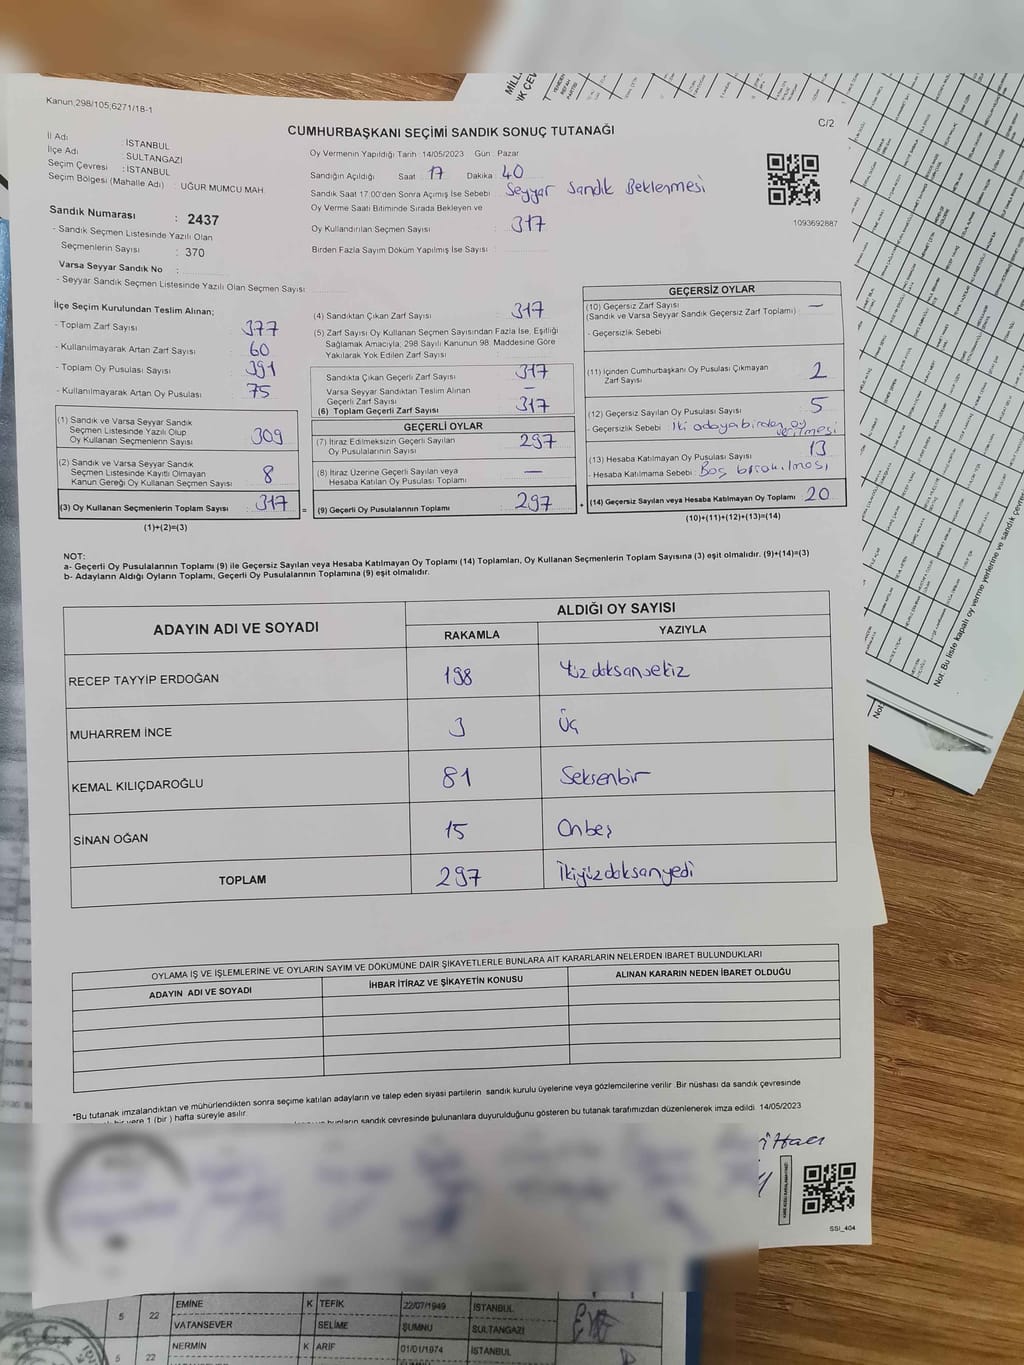 Kanun,298/105;6271/18-1
C/2
CUMHURBAŞKANI SEÇİMİ SANDIK SONUÇ TUTANAĞI
İl Adı : İSTANBUL
İlçe Adı : SULTANGAZİ
Seçim Çevresi : İSTANBUL
Seçim Bölgesi (Mahalle Adı) : UĞUR MUMCU MAH.
Sandık Numarası : 2437
- Sandık Seçmen Listesinde Yazılı Olan
Seçmenlerin Sayısı : 370
Varsa Seyyar Sandık No :
- Seyyar Sandık Seçmen Listesinde Yazılı Olan Seçmen Sayısı :
Oy Vermenin Yapıldığı Tarih : 14/05/2023 Gün : Pazar
Sandığın Açıldığı Saat : 17 Dakika : 40
Sandık Saat 17.00'den Sonra Açımış İse Sebebi : Seyyar Sandık Beklenmesi
Oy Verme Saati Bitiminde Sırada Bekleyen ve
Oy Kullandırılan Seçmen Sayısı : 317
Birden Fazla Sayım Döküm Yapılmış İse Sayısı :
1093692887
İlçe Seçim Kurulundan Teslim Alınan;
- Toplam Zarf Sayısı : 377
- Kullanılmayarak Artan Zarf Sayısı : 60
- Toplam Oy Pusulası Sayısı : 391
- Kullanılmayarak Artan Oy Pusulası : 75
(1) Sandık ve Varsa Seyyar Sandık
Seçmen Listesinde Yazılı Olup
Oy Kullanan Seçmenlerin Sayısı : 309
(2) Sandık ve Varsa Seyyar Sandık
Seçmen Listesinde Kayıtlı Olmayan
Kanun Gereği Oy Kullanan Seçmen Sayısı : 8
(3) Oy Kullanan Seçmenlerin Toplam Sayısı : 317 =
(1)+(2)=(3)
(4) Sandıktan Çıkan Zarf Sayısı : 317
(5) Zarf Sayısı Oy Kullanan Seçmen Sayısından Fazla İse, Eşitliği
Sağlamak Amacıyla; 298 Sayılı Kanunun 98. Maddesine Göre
Yakılarak Yok Edilen Zarf Sayısı :
Sandıkta Çıkan Geçerli Zarf Sayısı : 317
Varsa Seyyar Sandıktan Teslim Alınan
Geçerli Zarf Sayısı : —
(6) Toplam Geçerli Zarf Sayısı : 317
GEÇERLİ OYLAR
(7) İtiraz Edilmeksizin Geçerli Sayılan
Oy Pusulalarının Sayısı : 297
(8) İtiraz Üzerine Geçerli Sayılan veya
Hesaba Katılan Oy Pusulası Toplamı : —
(9) Geçerli Oy Pusulalarının Toplamı : 297 +
GEÇERSİZ OYLAR
(10) Geçersiz Zarf Sayısı : —
(Sandık ve Varsa Seyyar Sandık Geçersiz Zarf Toplamı)
- Geçersizlik Sebebi :
(11) İçinden Cumhurbaşkanı Oy Pusulası Çıkmayan
Zarf Sayısı : 2
(12) Geçersiz Sayılan Oy Pusulası Sayısı : 5
- Geçersizlik Sebebi : İki adaya birden oy
verilmesi
(13) Hesaba Katılmayan Oy Pusulası Sayısı : 13
- Hesaba Katılmama Sebebi : Boş bırakılması
(14) Geçersiz Sayılan veya Hesaba Katılmayan Oy Toplamı : 20
(10)+(11)+(12)+(13)=(14)
NOT:
a- Geçerli Oy Pusulalarının Toplamı (9) ile Geçersiz Sayılan veya Hesaba Katılmayan Oy Toplamı (14) Toplamları, Oy Kullanan Seçmenlerin Toplam Sayısına (3) eşit olmalıdır. (9)+(14)=(3)
b- Adayların Aldığı Oyların Toplamı, Geçerli Oy Pusulalarının Toplamına (9) eşit olmalıdır.
ADAYIN ADI VE SOYADI
ALDIĞI OY SAYISI
RAKAMLA YAZIYLA
RECEP TAYYİP ERDOĞAN 198 Yüzdoksansekiz
MUHARREM İNCE 3 Üç
KEMAL KILIÇDAROĞLU 81 Seksenbir
SİNAN OĞAN 15 Onbeş
TOPLAM 297 İkiyüzdoksanyedi
OYLAMA İŞ VE İŞLEMLERİNE VE OYLARIN SAYIM VE DÖKÜMÜNE DAİR ŞİKAYETLERLE BUNLARA AİT KARARLARIN NELERDEN İBARET BULUNDUKLARI
ADAYIN ADI VE SOYADI İHBAR İTİRAZ VE ŞİKAYETİN KONUSU ALINAN KARARIN NEDEN İBARET OLDUĞU
*Bu tutanak imzalandıktan ve mühürlendikten sonra seçime katılan adayların ve talep eden siyasi partilerin sandık kurulu üyelerine veya gözlemcilerine verilir. Bir nüshası da sandık çevresinde
bir yere 1 (bir) hafta süreyle asılır.
bunların sandık çevresinde bulunanlara duyurulduğunu gösteren bu tutanak tarafımızdan düzenlenerek imza edildi. 14/05/2023
SSI_404
5 22 EMİNE K TEFİK 22/07/1949 İSTANBUL
VATANSEVER SELİME ŞUMNU SULTANGAZİ
5 22 NERMİN K ARİF 01/01/1974 İSTANBUL
Not: Bu liste kapalı oy verme yerlerine ve sandık çevre
Not